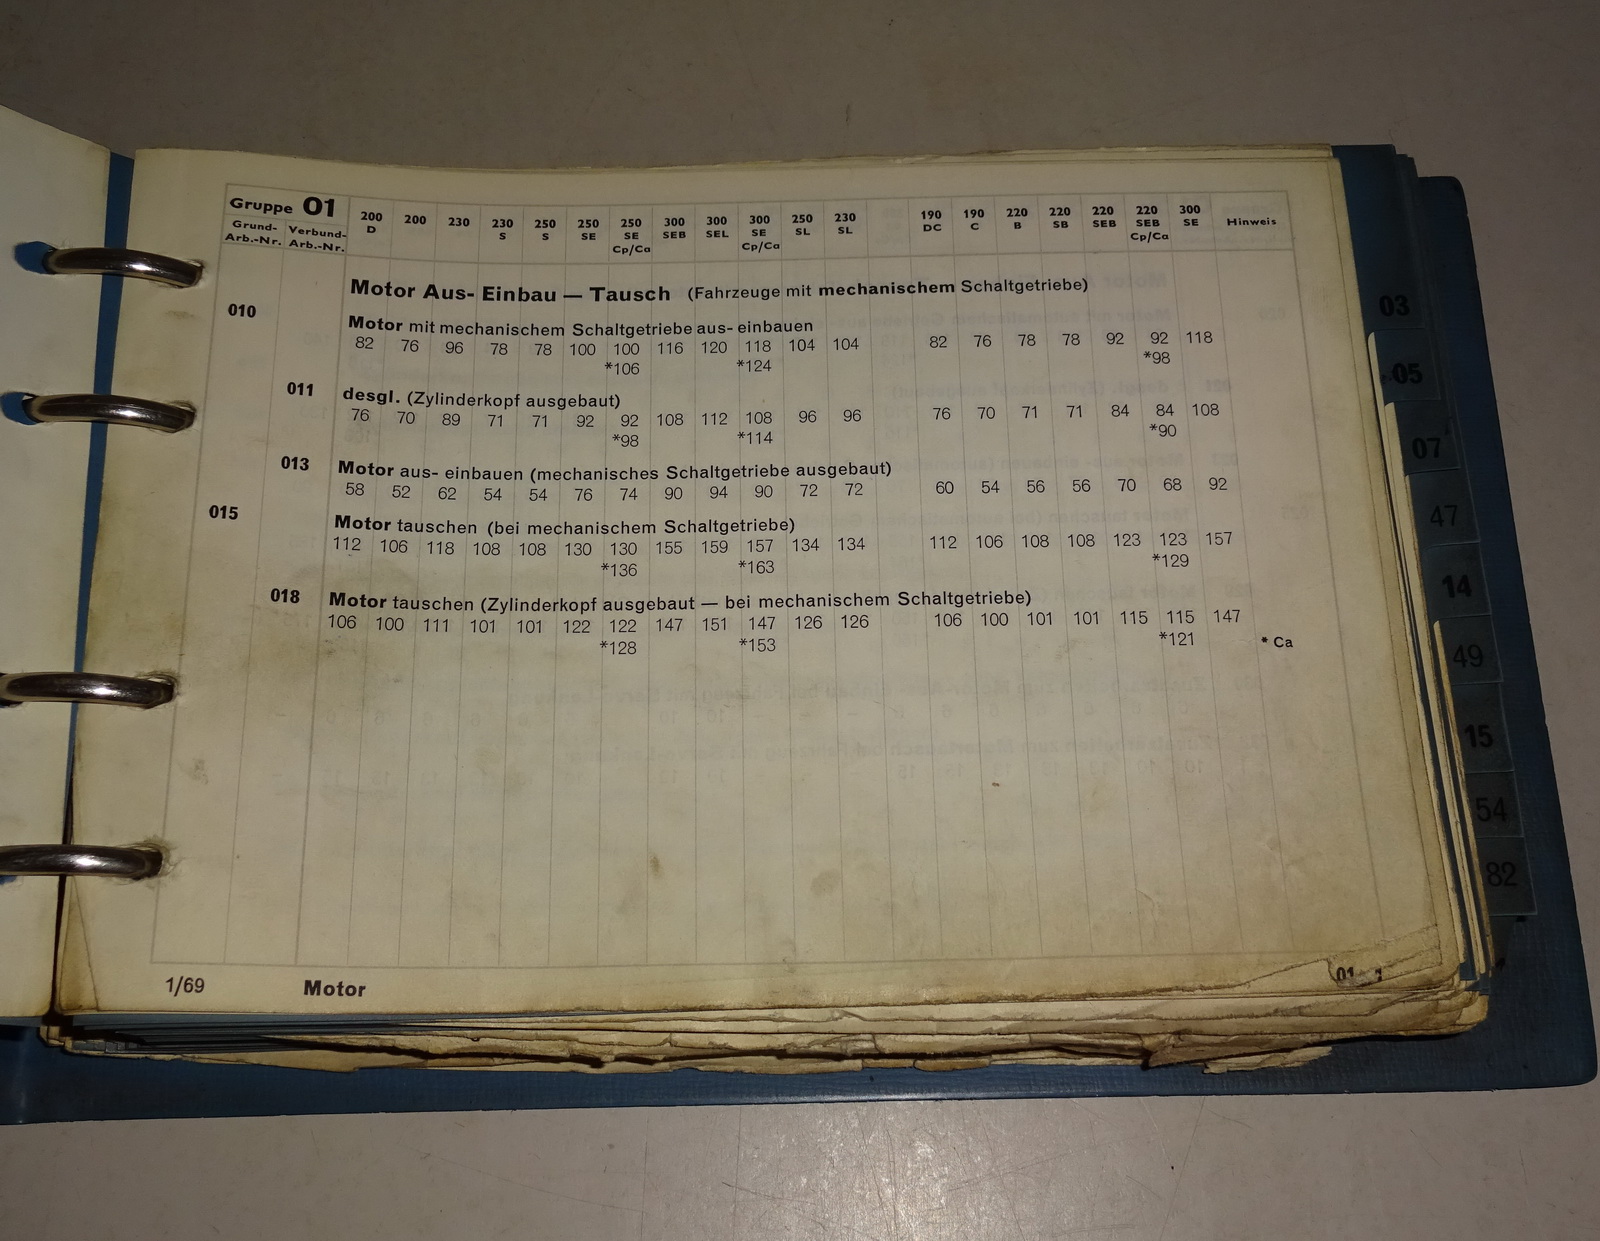 Gruppe 01
Grund-Arb.-Nr. Verbund-Arb.-Nr. 200 D 200 230 230 S 250 S 250 SE 250 SE Cp/Ca 300 SEB 300 SEL 300 SE Cp/Ca 250 SL 230 SL 190 DC 190 C 220 B 220 SB 220 SEB 220 SEB Cp/Ca 300 SE Hinweis
Motor Aus- Einbau — Tausch (Fahrzeuge mit mechanischem Schaltgetriebe)
010
Motor mit mechanischem Schaltgetriebe aus- einbauen
82 76 96 78 78 100 100 116 120 118 104 104 82 76 78 78 92 92 118
*106 *124 *98
011 desgl. (Zylinderkopf ausgebaut)
76 70 89 71 71 92 92 108 112 108 96 96 76 70 71 71 84 84 108
*98 *114 *90
013 Motor aus- einbauen (mechanisches Schaltgetriebe ausgebaut)
58 52 62 54 54 76 74 90 94 90 72 72 60 54 56 56 70 68 92
015 Motor tauschen (bei mechanischem Schaltgetriebe)
112 106 118 108 108 130 130 155 159 157 134 134 112 106 108 108 123 123 157
*136 *163 *129
018 Motor tauschen (Zylinderkopf ausgebaut — bei mechanischem Schaltgetriebe)
106 100 111 101 101 122 122 147 151 147 126 126 106 100 101 101 115 115 147
*128 *153 *121 * Ca
1/69 Motor 01
03
05
07
47
14
49
15
54
82